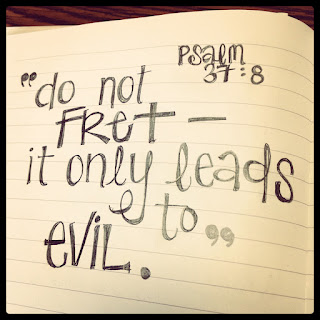 Psalm
37:8
"do not
FRet —
it only leads
to"
evil.